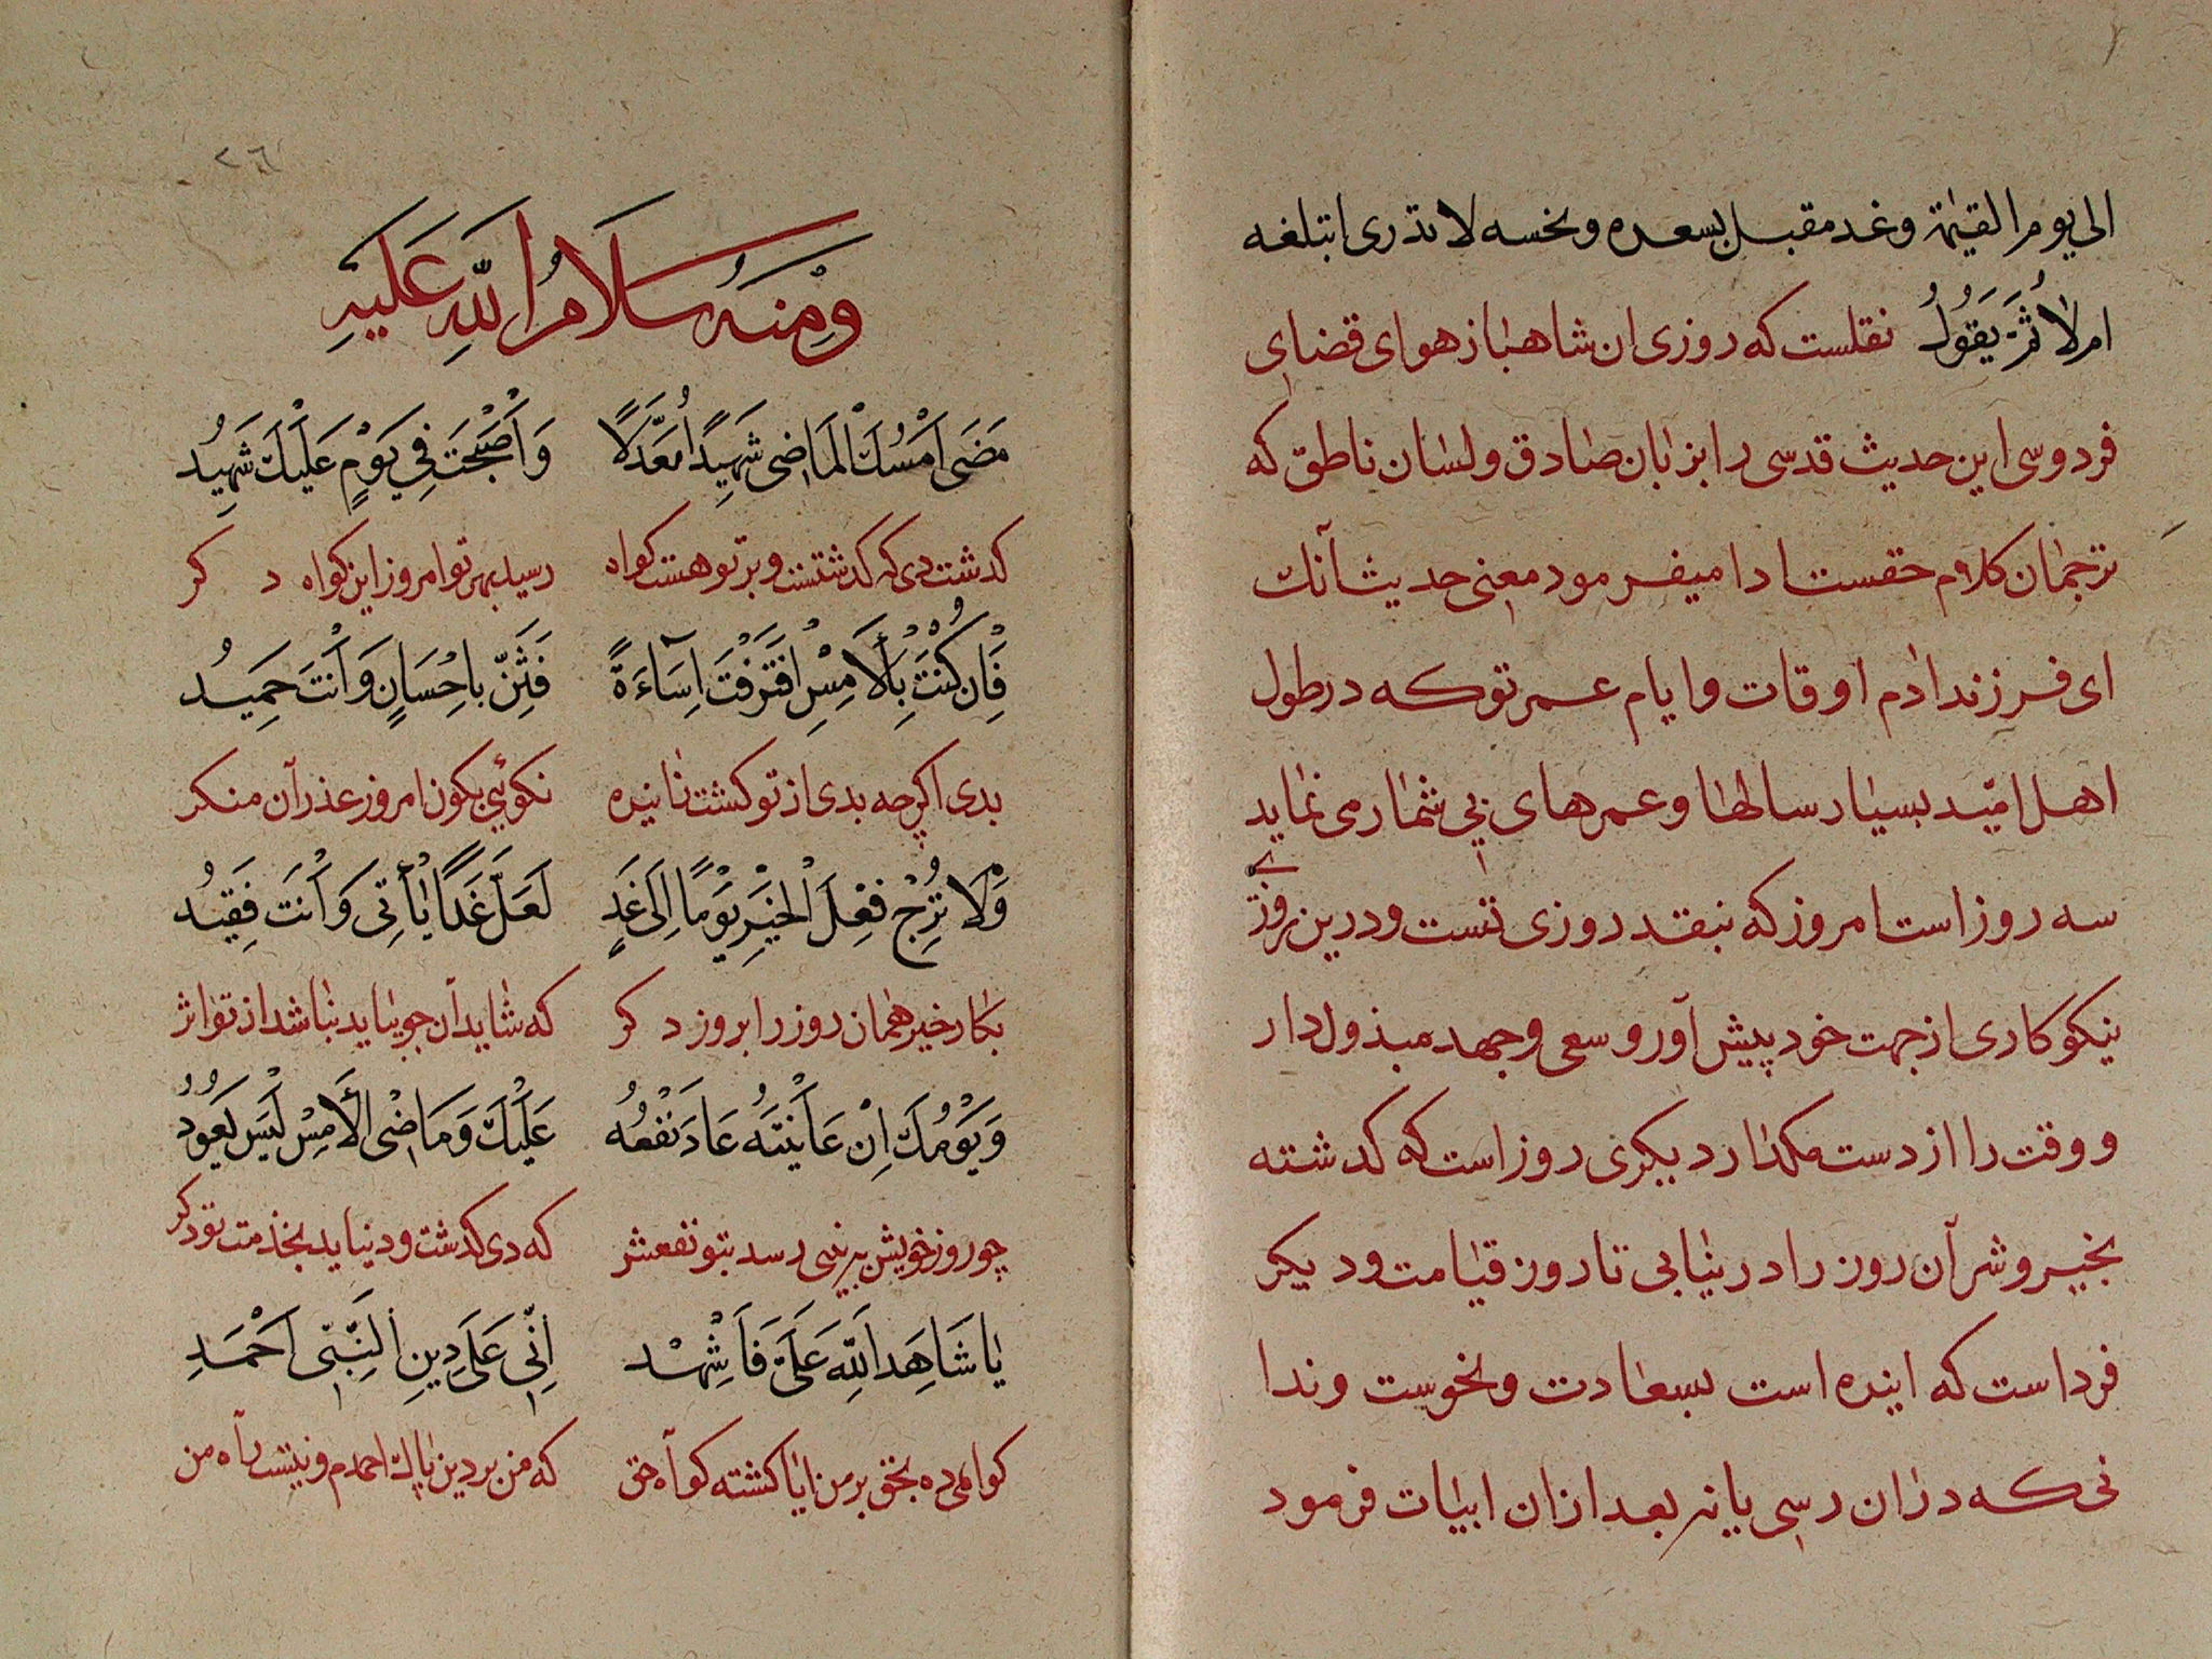 الی یوم القیٰمة وغد مقبل بسعده ونحسه لا تدری اتبلغه
ام لا ثُمَّ یَقُولُ نقلست که روزی ان شاهباز هوای قضای
فردوسی این حدیث قدسی را بزبان صادق ولسان ناطق که
ترجمان کلام حقست ادا میفرمود معنی حدیث آنک
ای فرزند ادم اوقات وایام عمر توکه در طول
اهل امّید بسیار سالها وعمرهای بی شمار می نماید
سه روز است امروز که بنقد روزی تست ودرین روز
نیکو کاری از جهت خود پیش آور وسعی وجهد مبذول دار
ووقت را از دست مکذار دیکری روز است که کدشته
بخیر وشر آن روز را در نیابی تا روز قیامت ودیکر
فردا ست که اینده است بسعادت ونحوست وندا
نی که دران رسی یا نه بعد ازان ابیات فرمود
٢٦
وَمِنهُ سَلَامُ اللّٰهِ عَلَیهِ
مَضَی اَمْسُكَ الْمَاضِی شَهِیدًا مُعَدَّلًا وَاَصْبَحْتَ فِی یَوْمٍ عَلَیْكَ شَهِیدُ
کدشت دی که کدشتست وبر تو هست کواه رسید بهر تو امروز این کواه د کر
فَاِن کُنْتَ بِالْاَمْسِ اقْتَرَفْتَ اِسَآءَةً فَثَنِّ بِاِحْسَانٍ وَاَنْتَ حَمِیدُ
بدی اکرچه بدی از تو کشت زاینده نکوئی بکون امروز عذر آن منکر
وَلَا تُرْجِ فِعْلَ الْخَیْرِ یَوْمًا اِلَی غَدٍ لَعَلَّ غَدًا یَأْتِی وَاَنْتَ فَقِیدُ
بکار خیر همان روز را بروز د کر که شاید آن چو بیاید نباشد از تو اثر
وَیَوْمُكَ اِنْ عَایَنْتَهُ عَادَ نَفْعُهُ عَلَیْكَ وَمَاضِی الْاَمْسِ لَیْسَ یَعُودُ
چو روز خویش ببینی رسد بتو نفعش که دی کدشت ودنیاید بخدمت تو دکر
یَا شَاهِدَ اللّٰهِ عَلَیَّ فَاشْهَدْ اِنِّی عَلَی دِینِ النَّبِیِّ اَحْمَدِ
کواهی ده بحق بر من ایا کشته کواه حق که من بر دین پاك احمدم ونیست راه من